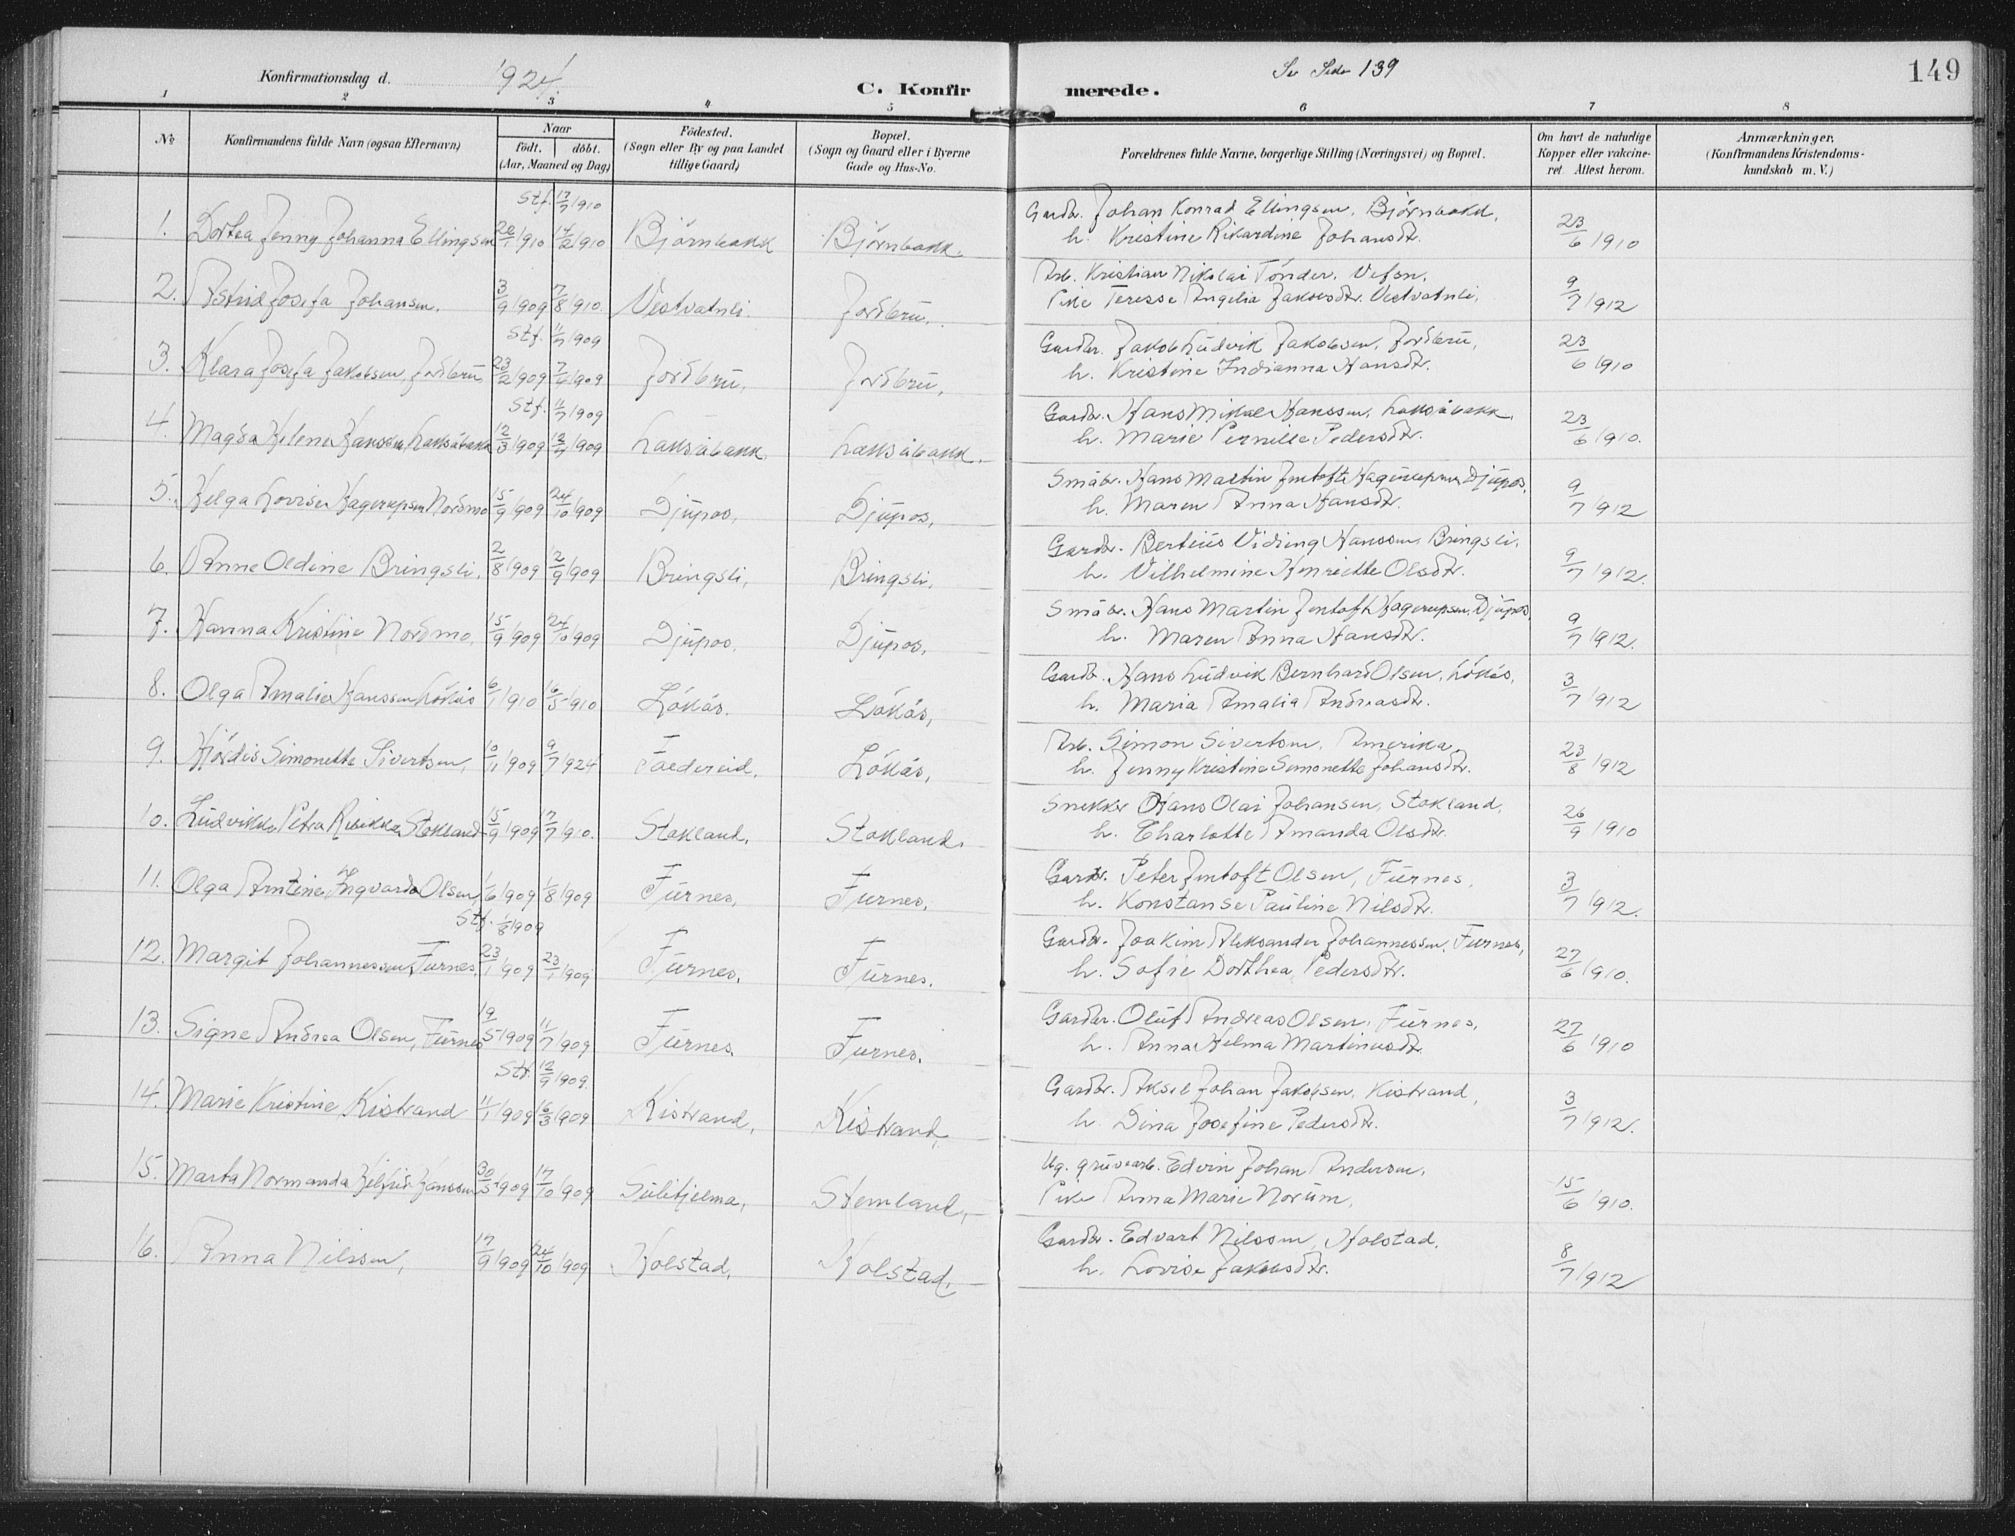 Konfirmationsdag d. 1924. C. Konfirmerede. Se Side 139 149
1 2 3 4 5 6 7 8
No. Konfirmandens fulde Navn (ogsaa Efternavn) Naar født. døbt. (Aar, Maaned og Dag) Födested. (Sogn eller By og paa Landet tillige Gaard) Bopæl. (Sogn og Gaard eller i Byerne Gade og Hus-No. Forældrenes fulde Navne, borgerlige Stilling (Næringsvei) og Bopæl. Om havt de naturlige Kopper eller vakcineret. Attest herom. Anmærkninger. (Konfirmandens Kristendomskundskab m. V.)
Stf. 17/7 1910
1. Dortea Jenny Johanna Ellingsen 20/1 1910 14/2 1910 Bjørnbakk Bjørnbakk. Gardbr. Johan Konrad Ellingsen, Bjørnbakk,
h. Kristine Rikardine Johansdtr. 23/6 1910
2. Astrid Josefa Johansen. 3/9 1909 7/8 1910. Vestvatnli. Jordbru. Arb. Kristian Nikolai Tönder, Vefsn,
Pike Teresse Angelia Jakobsdtr. Vestvatnli, 9/7 1912
Stf. 11/7 1909
3. Klara Josefa Jakobsen, Jordbru, 23/2 1909 7/4 1909 Jordbru. Jordbru. Gardbr. Jakob Ludvik Jakobsen, Jordbru,
h. Kristine Indianna Hansdtr. 23/6 1910
Stf. 11/7 1909
4. Magda Helene Hanssen, Laksåbakk 12/3 1909 12/4 1909 Laksåbakk. Laksåbakk. Gardbr. Hans Mikal Hanssen, Laksåbakk,
h. Marie Pernille Pedersdtr. 23/6 1910.
5. Helga Lovise Hagerupsen Nordmo 15/9 1909 24/10 1909 Djupos, Djupos, Småbr. Hans Martin Jentoft Hagerupsen, Djupos,
h. Maren Anna Hansdtr. 9/7 1912
6. Anne Oldine Bringsli, 2/8 1909 12/9 1909 Bringsli, Bringsli. Gardbr. Bertius Viding Hanssen, Bringsli,
h. Vilhelmine Henriette Olsdtr. 9/7 1912.
7. Hanna Kristine Nordmo, 15/9 1909 24/10 1909 Djupos, Djupos, Småbr. Hans Martin Jentoft Hagerupsen, Djupos,
h. Maren Anna Hansdtr. 9/7 1912.
8. Olga Amalie Hanssen Lökås 6/1 1910 16/5 1910 Lökås. Lökås, Gardbr. Hans Ludvik Bernhard Olsen, Lökås,
h. Maria Amalia Andreasdtr. 3/7 1912
9. Hjördis Simonette Sivertsen, 10/11 1909 9/7 1924 Faedereid, Lökås, Arb. Simon Sivertsen, Amerika,
h. Jenny Kristine Simonette Johansdtr. 23/8 1912
10. Ludvikke Petra Rikikke Stokland 15/9 1909 17/7 1910. Stokland, Stokland. Snekker Hans Olai Johansen, Stokland,
h. Charlotte Amanda Olsdtr. 26/9 1910
11. Olga Antine Ingvarda Olsen, 1/6 1909 1/8 1909 Furnes, Furnes, Gardbr. Peter Jentoft Olsen, Furnes,
h. Konstanse Pauline Nilsdtr. 3/7 1912.
Stf. 1/8 1909
12. Margit Johannessen, Furnes, 23/1 1909 23/1 1909 Furnes, Furnes. Gardbr. Joakim Aleksander Johannessen, Furnes,
h. Sofie Dorthea Pedersdtr. 27/6 1910.
13. Signe Andrea Olsen, Furnes 19/5 1909 11/7 1909 Furnes. Furnes. Gardbr. Oluf Andreas Olsen, Furnes,
h. Anna Helma Martinusdtr. 27/6 1910
Stf. 12/9 1909.
14. Marie Kristine Kistrand 11/1 1909 16/3 1909. Kistrand, Kistrand, Gardbr. Aksel Johan Jakobsen, Kistrand,
h. Dina Josefine Pedersdtr. 3/7 1912.
15. Marta Normanda Hanssen 30/5 1909 17/10 1909 Sulitjelma, Stemland, Ug. gruvearb. Edvin Johan Andersen,
Pike Anna Marie Norum, 15/6 1910.
16. Anna Nilssen, 17/9 1909 24/10 1909 Holstad, Holstad, Gardbr. Edvart Nilssen, Holstad,
h. Lovise Jakobsdtr. 8/7 1912